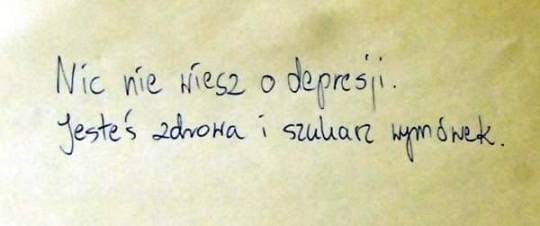 Nic nie wiesz o depresji.
Jesteś zdrowa i szukasz wymówek.